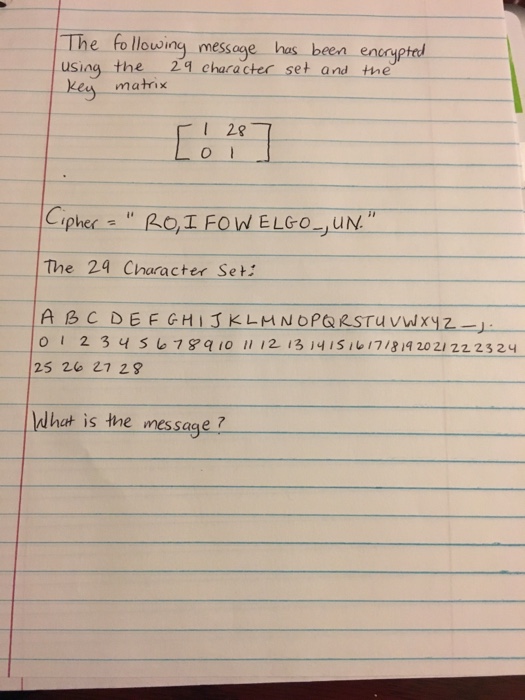 The following message has been encrypted
using the 29 character set and the
key matrix
[ 1 28
0 1 ]
Cipher = " RO,I FOWELGO_,UN."
The 29 Character Set:
A B C D E F G H I J K L M N O P Q R S T U V W X Y Z _ , .
0 1 2 3 4 5 6 7 8 9 10 11 12 13 14 15 16 17 18 19 20 21 22 23 24
25 26 27 28
What is the message?